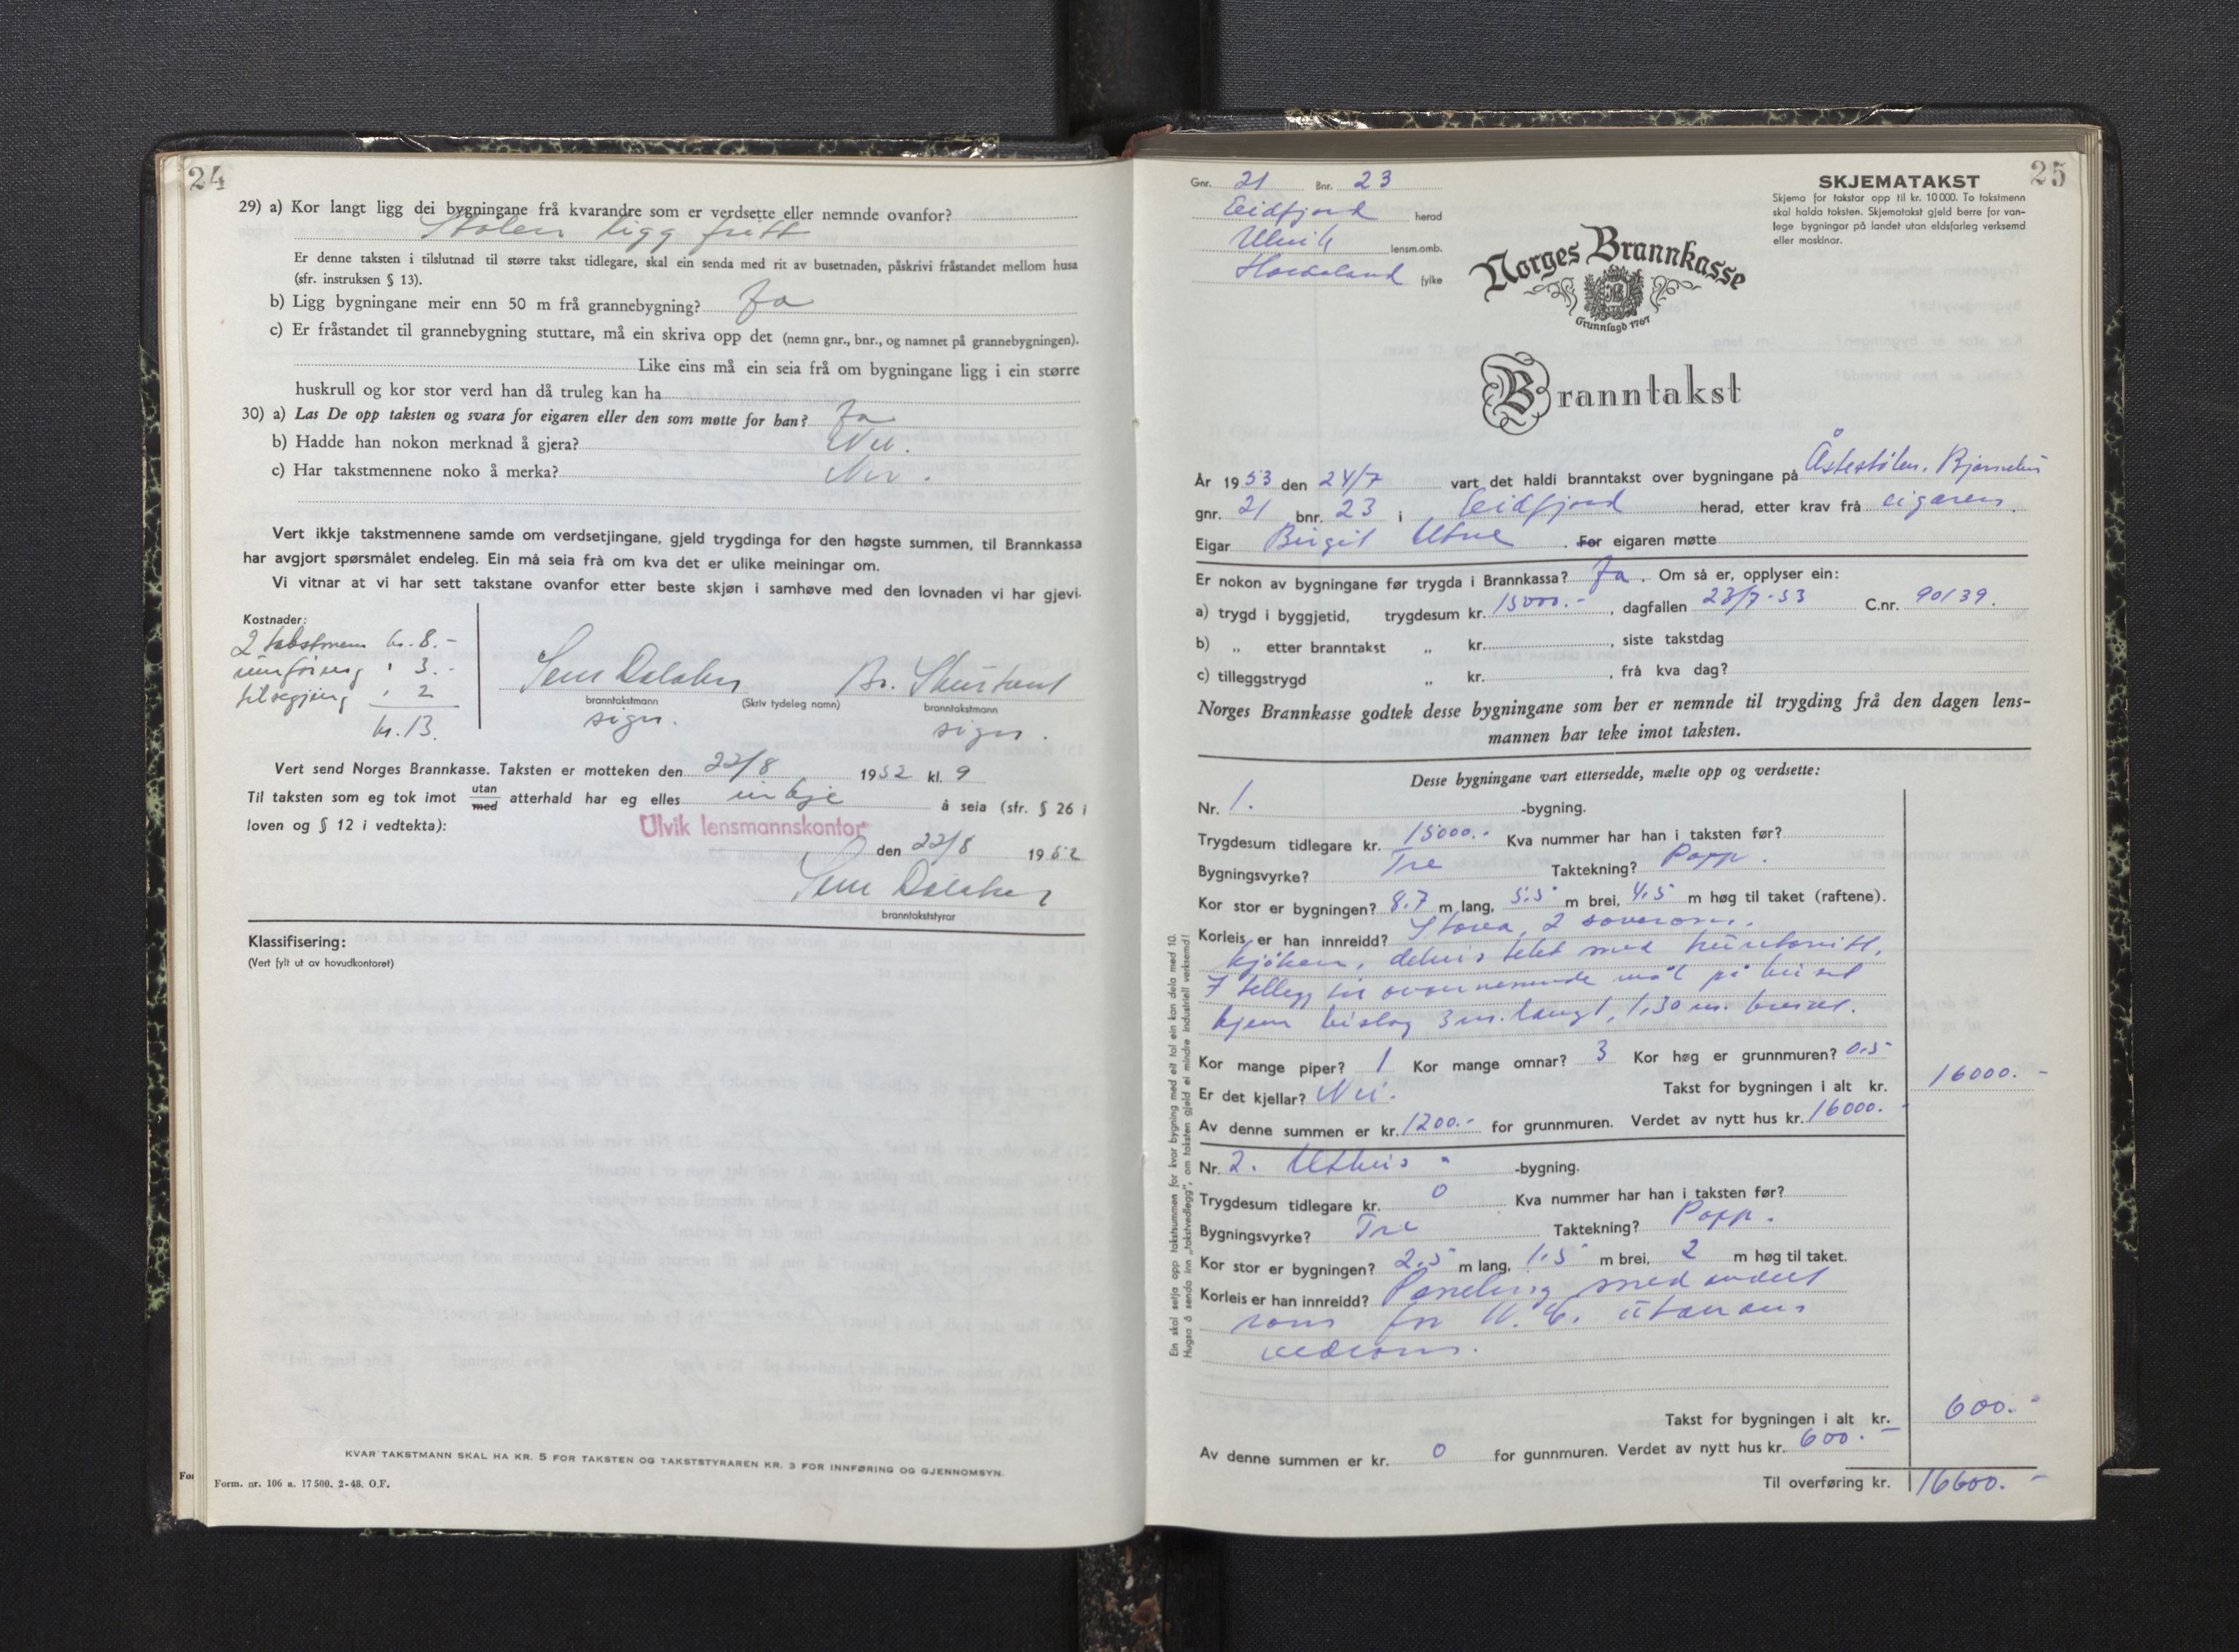 24
29) a) Kor langt ligg dei bygningane frå kvarandre som er verdsette eller nemnde ovanfor?
Stølen ligg fritt
Er denne taksten i tilslutnad til større takst tidlegare, skal ein senda med rit av busetnaden, påskrivi fråstandet mellom husa
(sfr. instruksen § 13).
b) Ligg bygningane meir enn 50 m frå grannebygning? Ja
c) Er fråstandet til grannebygning stuttare, må ein skriva opp det (nemn gnr., bnr., og namnet på grannebygningen).
Like eins må ein seia frå om bygningane ligg i ein større
huskrull og kor stor verd han då truleg kan ha
30) a) Las De opp taksten og svara for eigaren eller den som møtte for han? Ja
b) Hadde han nokon merknad å gjera? Nei.
c) Har takstmennene noko å merka? Nei.
Vert ikkje takstmennene samde om verdsetjingane, gjeld trygdinga for den høgste summen, til Brannkassa
har avgjort spørsmålet endeleg. Ein må seia frå om kva det er ulike meiningar om.
Vi vitnar at vi har sett takstane ovanfor etter beste skjøn i samhøve med den lovnaden vi har gjevi.
Kostnader:
2 takstmenn kr. 8.-
innføring " 3.-
" 2
kr. 13.
branntakstmann (Skriv tydeleg namn) branntakstmann
sign. sign.
Vert send Norges Brannkasse. Taksten er motteken den 22/8 1952 kl. 9
Til taksten som eg tok imot utan/med atterhald har eg elles inkje å seia (sfr. § 26 i
loven og § 12 i vedtekta):
Ulvik lensmannskontor
den 22/8 1952
branntakststyrar
Klassifisering:
(Vert fylt ut av hovudkontoret)
KVAR TAKSTMANN SKAL HA KR. 5 FOR TAKSTEN OG TAKSTSTYRAREN KR. 3 FOR INNFØRING OG GJENNOMSYN.
Form. nr. 106 a. 17 500. 2-48. O.F.
25
Gnr. 21 Bnr. 23
Eidfjord herad
Ulvik lensm.omb.
Hordaland fylke
SKJEMATAKST
Skjema for takstar opp til kr. 10 000. To takstmenn
skal halda taksten. Skjematakst gjeld berre for van-
lege bygningar på landet utan eldsfarleg verksemd
eller maskinar.
Norges Brannkasse
Grunnlagd 1767
Branntakst
År 1953 den 24/7 vart det haldi branntakst over bygningane på Åstestølen,
gnr. 21 bnr. 23 i Eidfjord herad, etter krav frå eigaren.
Eigar Birgit Utne. For eigaren møtte
Er nokon av bygningane før trygda i Brannkassa? Ja. Om så er, opplyser ein:
a) trygd i byggjetid, trygdesum kr. 15000.-, dagfallen 23/7-53 C.nr. 90139.
b) „ etter branntakst „ kr. , siste takstdag
c) tilleggstrygd „ kr. , frå kva dag?
Norges Brannkasse godtek desse bygningane som her er nemnde til trygding frå den dagen lens-
mannen har teke imot taksten.
Desse bygningane vart ettersedde, mælte opp og verdsette:
Nr. 1. -bygning.
Trygdesum tidlegare kr. 15000.- Kva nummer har han i taksten før?
Bygningsvyrke? Tre Taktekning? Papp.
Kor stor er bygningen? 8.7 m lang, 5.5 m brei, 4.5 m høg til taket (raftene).
Korleis er han innreidd? Stova, 2 soverom,
kjøken, delvis tekt med huntonitt.
I tillegg til ovannemnde mål på huset
kjem bislag 3 m. langt, 1,30 m. breidt.
Kor mange piper? 1 Kor mange omnar? 3 Kor høg er grunnmuren? 0.5
Er det kjellar? Nei. Takst for bygningen i alt kr. 16000.-
Av denne summen er kr. 1200.- for grunnmuren. Verdet av nytt hus kr. 16000.-
Nr. 2. Uthus -bygning.
Trygdesum tidlegare kr. 0 Kva nummer har han i taksten før?
Bygningsvyrke? Tre Taktekning? Papp.
Kor stor er bygningen? 2,5 m lang, 1.5 m brei, 2 m høg til taket.
Korleis er han innreidd? Paneling med
rom for W.C.
vedrom.
Takst for bygningen i alt kr. 600.-
Av denne summen er kr. 0 for gunnmuren. Verdet av nytt hus kr. 600.-
Til overføring kr. 16600.-
Ein skal setja opp takstsummen for kvar bygning med eit tal ein kan dela med 10.
Hugsa å senda inn „takstvedlegg”, om taksten gjeld ei mindre industriell verksemd!